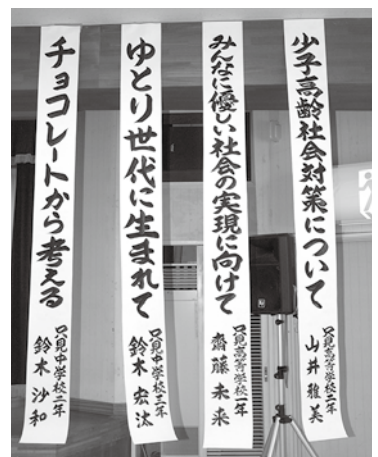 少子高齢社会対策について
只見高等学校二年
山井雅美
みんなに優しい社会の実現に向けて
只見高等学校一年
齋藤未来
ゆとり世代に生まれて
只見中学校三年
鈴木宏汰
チョコレートから考える
只見中学校二年
鈴木沙和